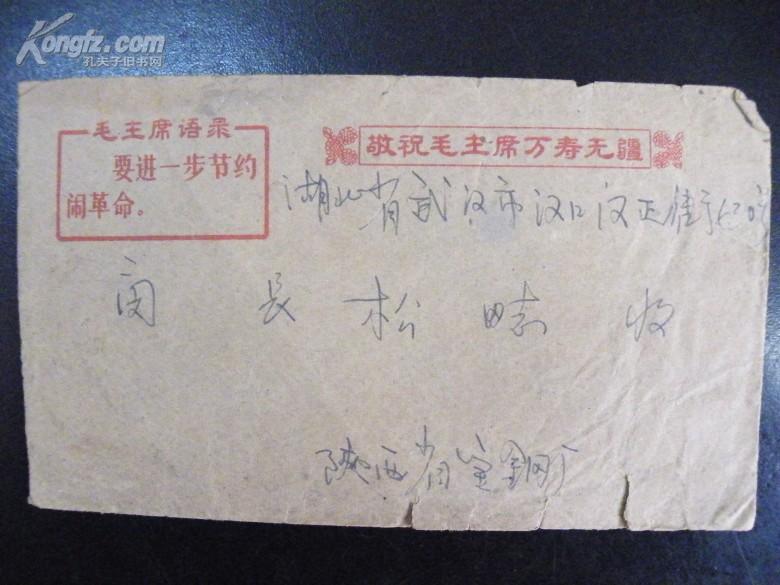 Kongfz.com
孔夫子旧书网
毛主席语录
要进一步节约
闹革命。
敬祝毛主席万寿无疆
湖北省武汉市汉口汉正街
闵长松 收
陕西省宝钢厂